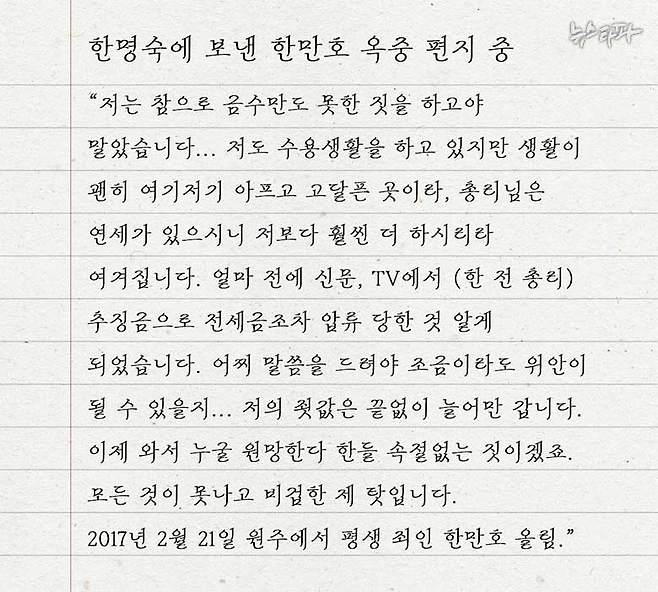 뉴스타파
한명숙에 보낸 한만호 옥중 편지 중
“저는 참으로 금수만도 못한 짓을 하고야
말았습니다... 저도 수용생활을 하고 있지만 생활이
괜히 여기저기 아프고 고달픈 곳이라, 총리님은
연세가 있으시니 저보다 훨씬 더 하시리라
여겨집니다. 얼마 전에 신문, TV에서 (한 전 총리)
추징금으로 전세금조차 압류 당한 것 알게
되었습니다. 어찌 말씀을 드려야 조금이라도 위안이
될 수 있을지... 저의 죗값은 끝없이 늘어만 갑니다.
이제 와서 누굴 원망한다 한들 속절없는 짓이겠죠.
모든 것이 못나고 비겁한 제 탓입니다.
2017년 2월 21일 원주에서 평생 죄인 한만호 올림.”